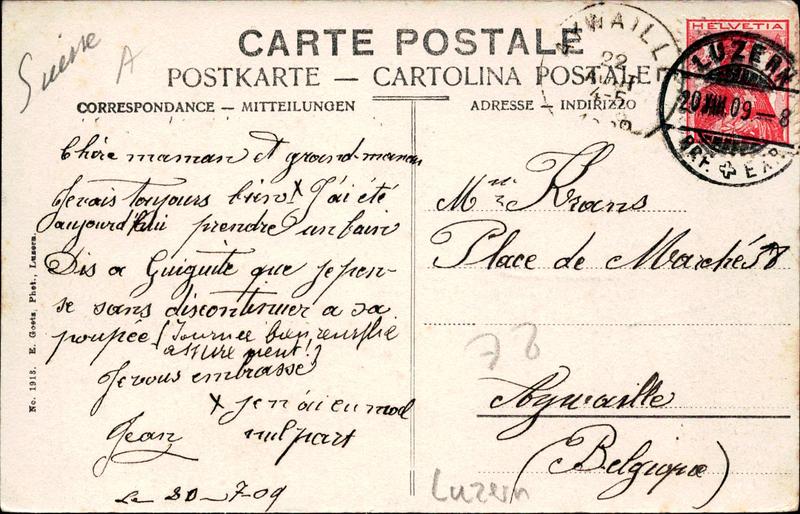 Suisse
A
CARTE POSTALE
POSTKARTE — CARTOLINA POSTALE
CORRESPONDANCE — MITTEILUNGEN
ADRESSE — INDIRIZZO
HELVETIA
LUZERN
20 VII 09 — 8
BRF. EXP.
AYWAILLE
22
4-5
Chère maman et grand-maman
Je vais toujours bien X J'ai été
aujourd'hui prendre un bain
Dis a Guiguite que je pen-
se sans discontinuer a sa
poupée (Tournee bien
assurement!)
Je vous embrasse
X je n'ai eu mal
nul part
Jean
Le 20-7-09
Krans
Place de Marché 78
78
Aywaille
(Belgique)
Luzern
No. 1913. E. Goetz, Phot. Luzern.